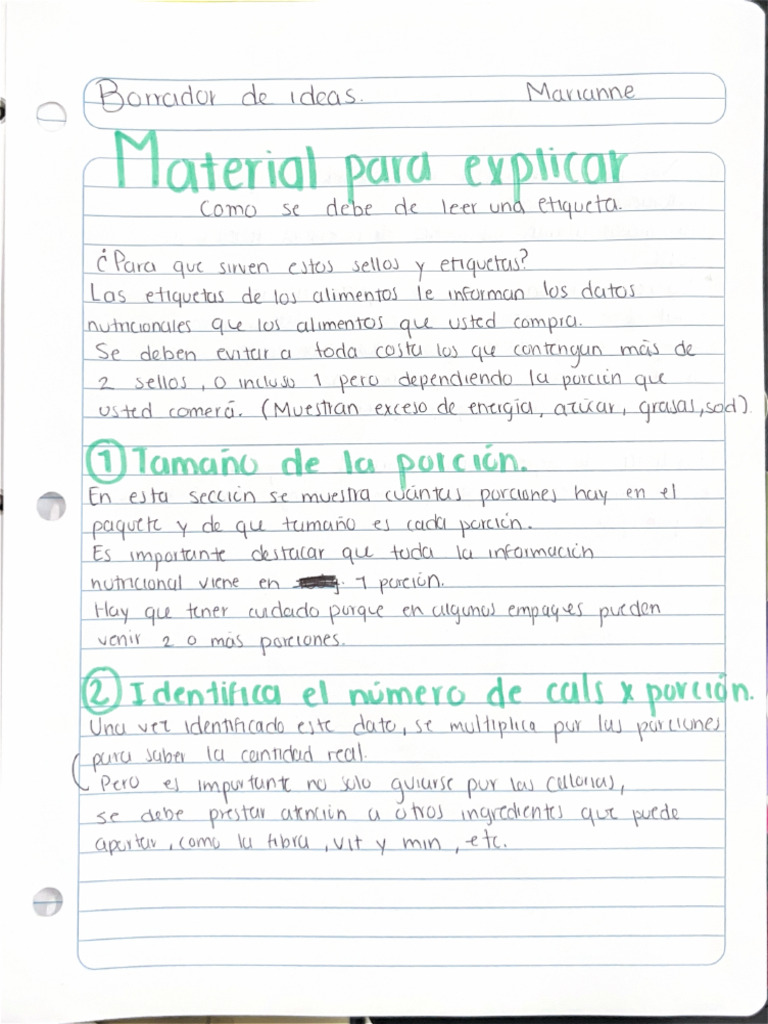 Borrador de ideas. Marianne
Material para explicar
Como se debe de leer una etiqueta.
¿Para que sirven estos sellos y etiquetas?
Las etiquetas de los alimentos le informan los datos
nutricionales que los alimentos que usted compra.
Se deben evitar a toda costa los que contengan más de
2 sellos, o incluso 1 pero dependiendo la porción que
usted comerá. (Muestran exceso de energía, azúcar, grasas, sod)
① Tamaño de la porción.
En esta sección se muestra cuántas porciones hay en el
paquete y de que tamaño es cada porción.
Es importante destacar que toda la información
nutricional viene en 1 porción.
Hay que tener cuidado porque en algunos empaques pueden
venir 2 o más porciones.
② Identifica el número de cals x porción.
Una vez identificado este dato, se multiplica por las porciones
para saber la cantidad real.
Pero es importante no solo guiarse por las calorías,
se debe prestar atención a otros ingredientes que puede
aportar, como la fibra, vit y min, etc.